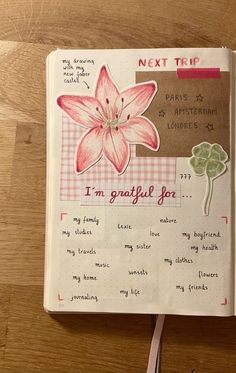 my drawing
with my
new faber
castel
NEXT TRIP
PARIS
AMSTERDAM
LONDRES
777
I'm gratful for ...
my family
nature
my studies
Lexie
love
my boyfriend
my travels
my sister
my health
music
my clothes
my home
sunsets
flowers
journaling
my life
my friends